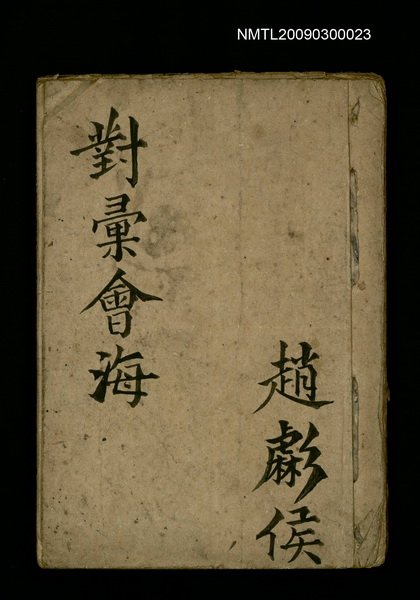 NMTL20090300023
對彙會海
趙劇侯